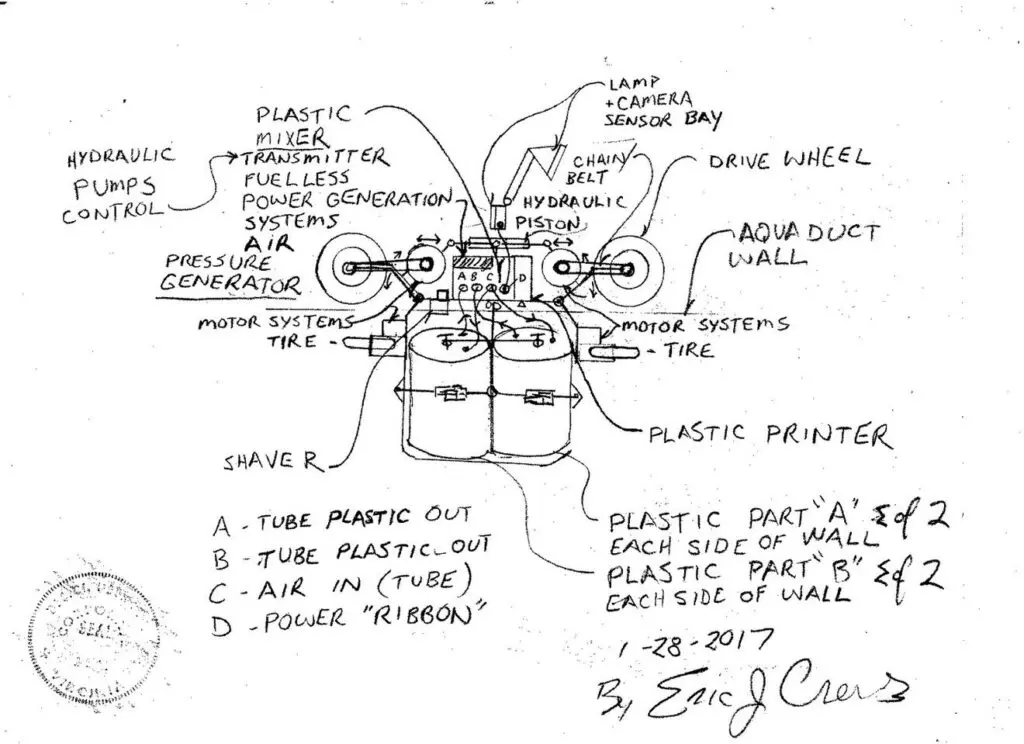 LAMP
+ CAMERA
SENSOR BAY
PLASTIC
MIXER
TRANSMITTER
FUELLESS
POWER GENERATION
SYSTEMS
AIR
PRESSURE
GENERATOR
HYDRAULIC
PUMPS
CONTROL
CHAIN
BELT
DRIVE WHEEL
HYDRAULIC
PISTON
AQUADUCT
WALL
A B C D
MOTOR SYSTEMS
TIRE -
MOTOR SYSTEMS
- TIRE
PLASTIC PRINTER
SHAVER
A - TUBE PLASTIC OUT
B - TUBE PLASTIC OUT
C - AIR IN (TUBE)
D - POWER "RIBBON"
PLASTIC PART "A" of 2
EACH SIDE OF WALL
PLASTIC PART "B" of 2
EACH SIDE OF WALL
1-28-2017
By Eric J Crews
SEAL